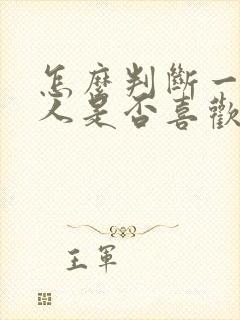 怎麼判斷一
人是否喜歡
王軍